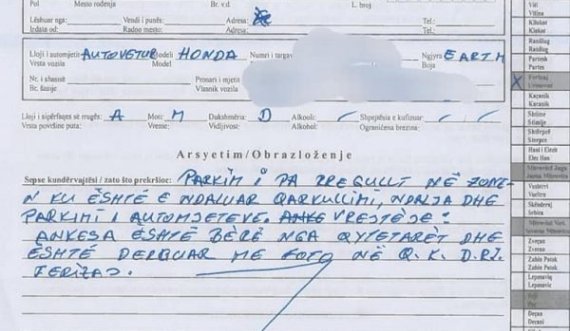 Pol Mesto rođenja Br. v.d. L. broj
Lëshuar nga: Vendi i punës: Adresa: Tel.:
Izdata od: Radno mesto: Adresa: Tel.:
Lloji i automjetit AUTOVETUR Modeli HONDA Numri i targav Ngjyra E ARTH
Vrsta vozila Model Boja
Nr. i shasisë Pronari i mjetit
Br. šasije Vlasnik vozila
Lloji i sipërfaqes së rrugës: A Moti: M Dukshmëria: D Alkooli: Shpejtësia e kufizuar:
Vrsta površine puta: Vreme: Vidljivost: Alkohol: Ograničena brzina:
Arsyetim/Obrazloženje
Sepse kundërvajtësi / zato što prekršioc: PARKIM I PA RREGULLT NË ZONË-
N KU ËSHTË E NDALUAR QARKULLIMI, NDALJA DHE
PARKIMI I AUTOMJETEVE. ANKE VREJTEJE:
ANKESA ËSHTË BËRË NGA QYTETARËT DHE
ËSHTË DERGUAR ME FOTO NË Q.K.D.RJ.
FERIZAJ.
Viti
Vitina
Klinë
Klokot
Ranillug
Ranilug
Partesh
Parteš
Ferizaj
Uroševac
Kaçanik
Kačanik
Shtime
Štimlje
Shtërpcë
Štrpce
Hani i Elezit
Mitrovicë
Vushtrri
Vučitrn
Skënderaj
Srbica
Zveçan
Zvečan
Zubin Potok
Zubin Potok
Leposaviq
Leposavić
Deçan
Dečani